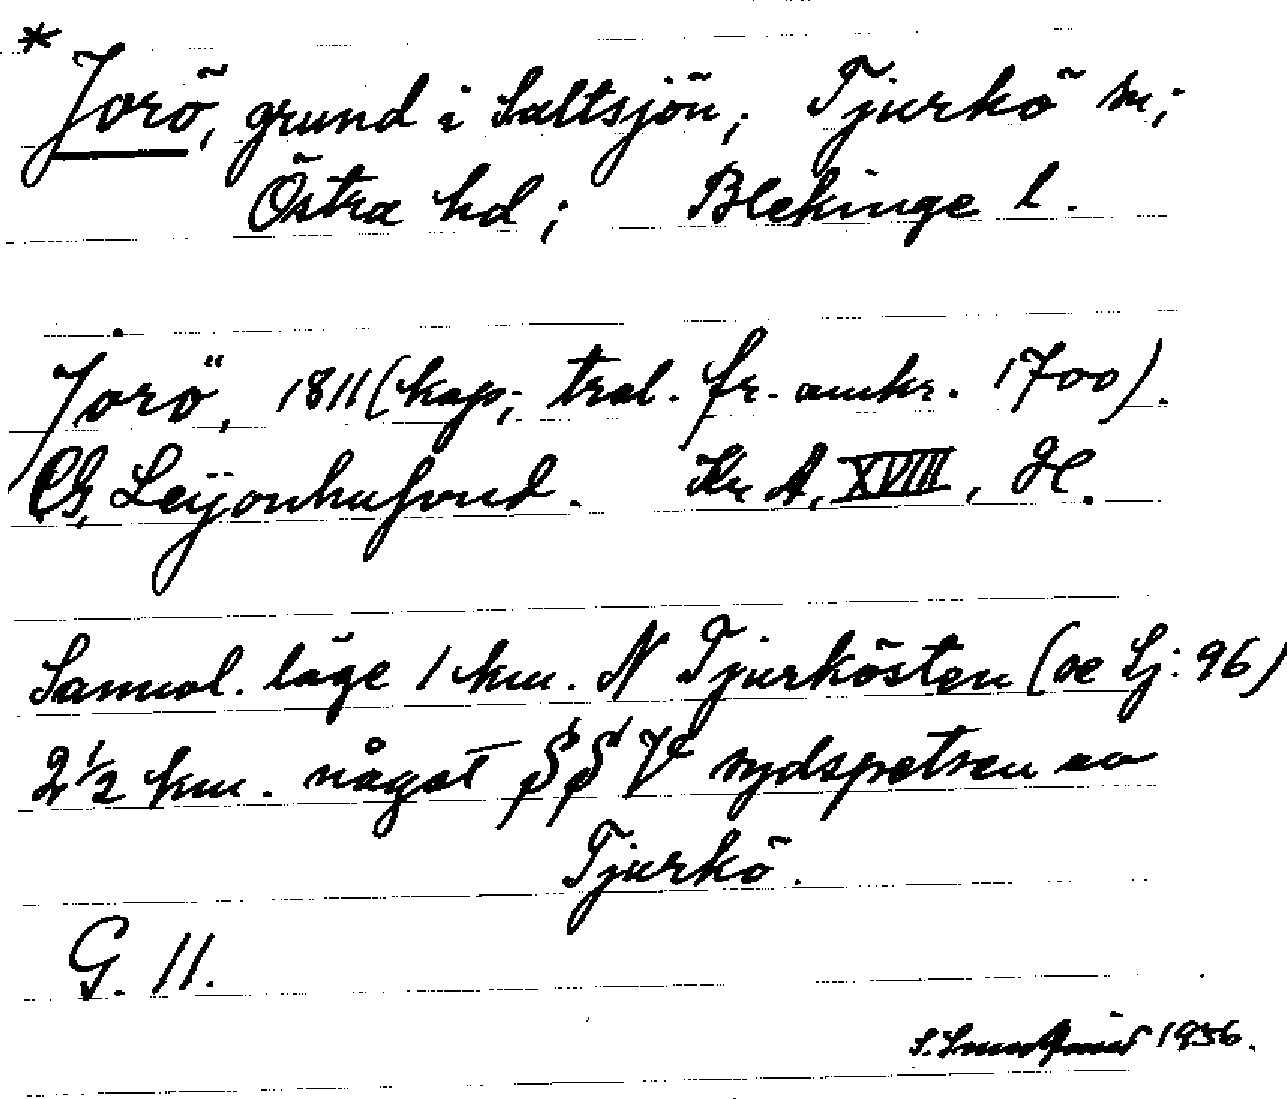 * Jorö, grund i Saltsjön; Tjurkö sn;
Östra hd; Blekinge l.
Jorö, 1811 (kop; trol. fr. omkr. 1700).
Ch, Leijonhufvud. Kr A, XVIII, H.
Sannol. läge 1 km. N Tjurkösten (se Sj: 96)
2 1/2 km. något SSV sydspetsen av
Tjurkö.
G. 11.
1956.